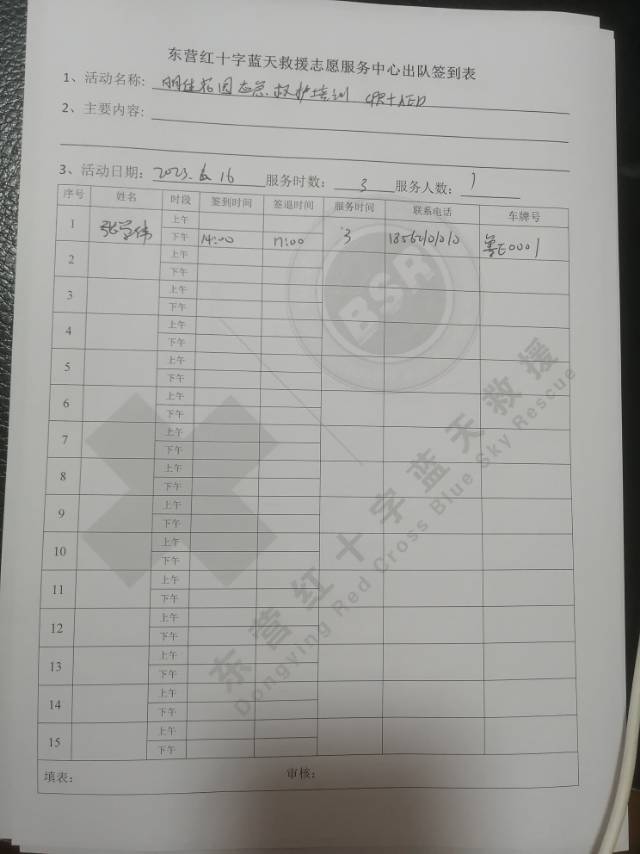 东营红十字蓝天救援志愿服务中心出队签到表
1、活动名称: 明佳花园应急救护培训 CPR+AED
2、主要内容:
3、活动日期: 2023.6.16 服务时数: 3 服务人数: 1
序号 姓名 时段 签到时间 签退时间 服务时间 联系电话 车牌号
1 上午
下午 14:00 17:00 3
2 上午
下午
3 上午
下午
4 上午
下午
5 上午
下午
6 上午
下午
7 上午
下午
8 上午
下午
9 上午
下午
10 上午
下午
11 上午
下午
12 上午
下午
13 上午
下午
14 上午
下午
15 上午
下午
填表: 审核:
BSR
东营红十字蓝天救援
Dongying Red Cross Blue Sky Rescue